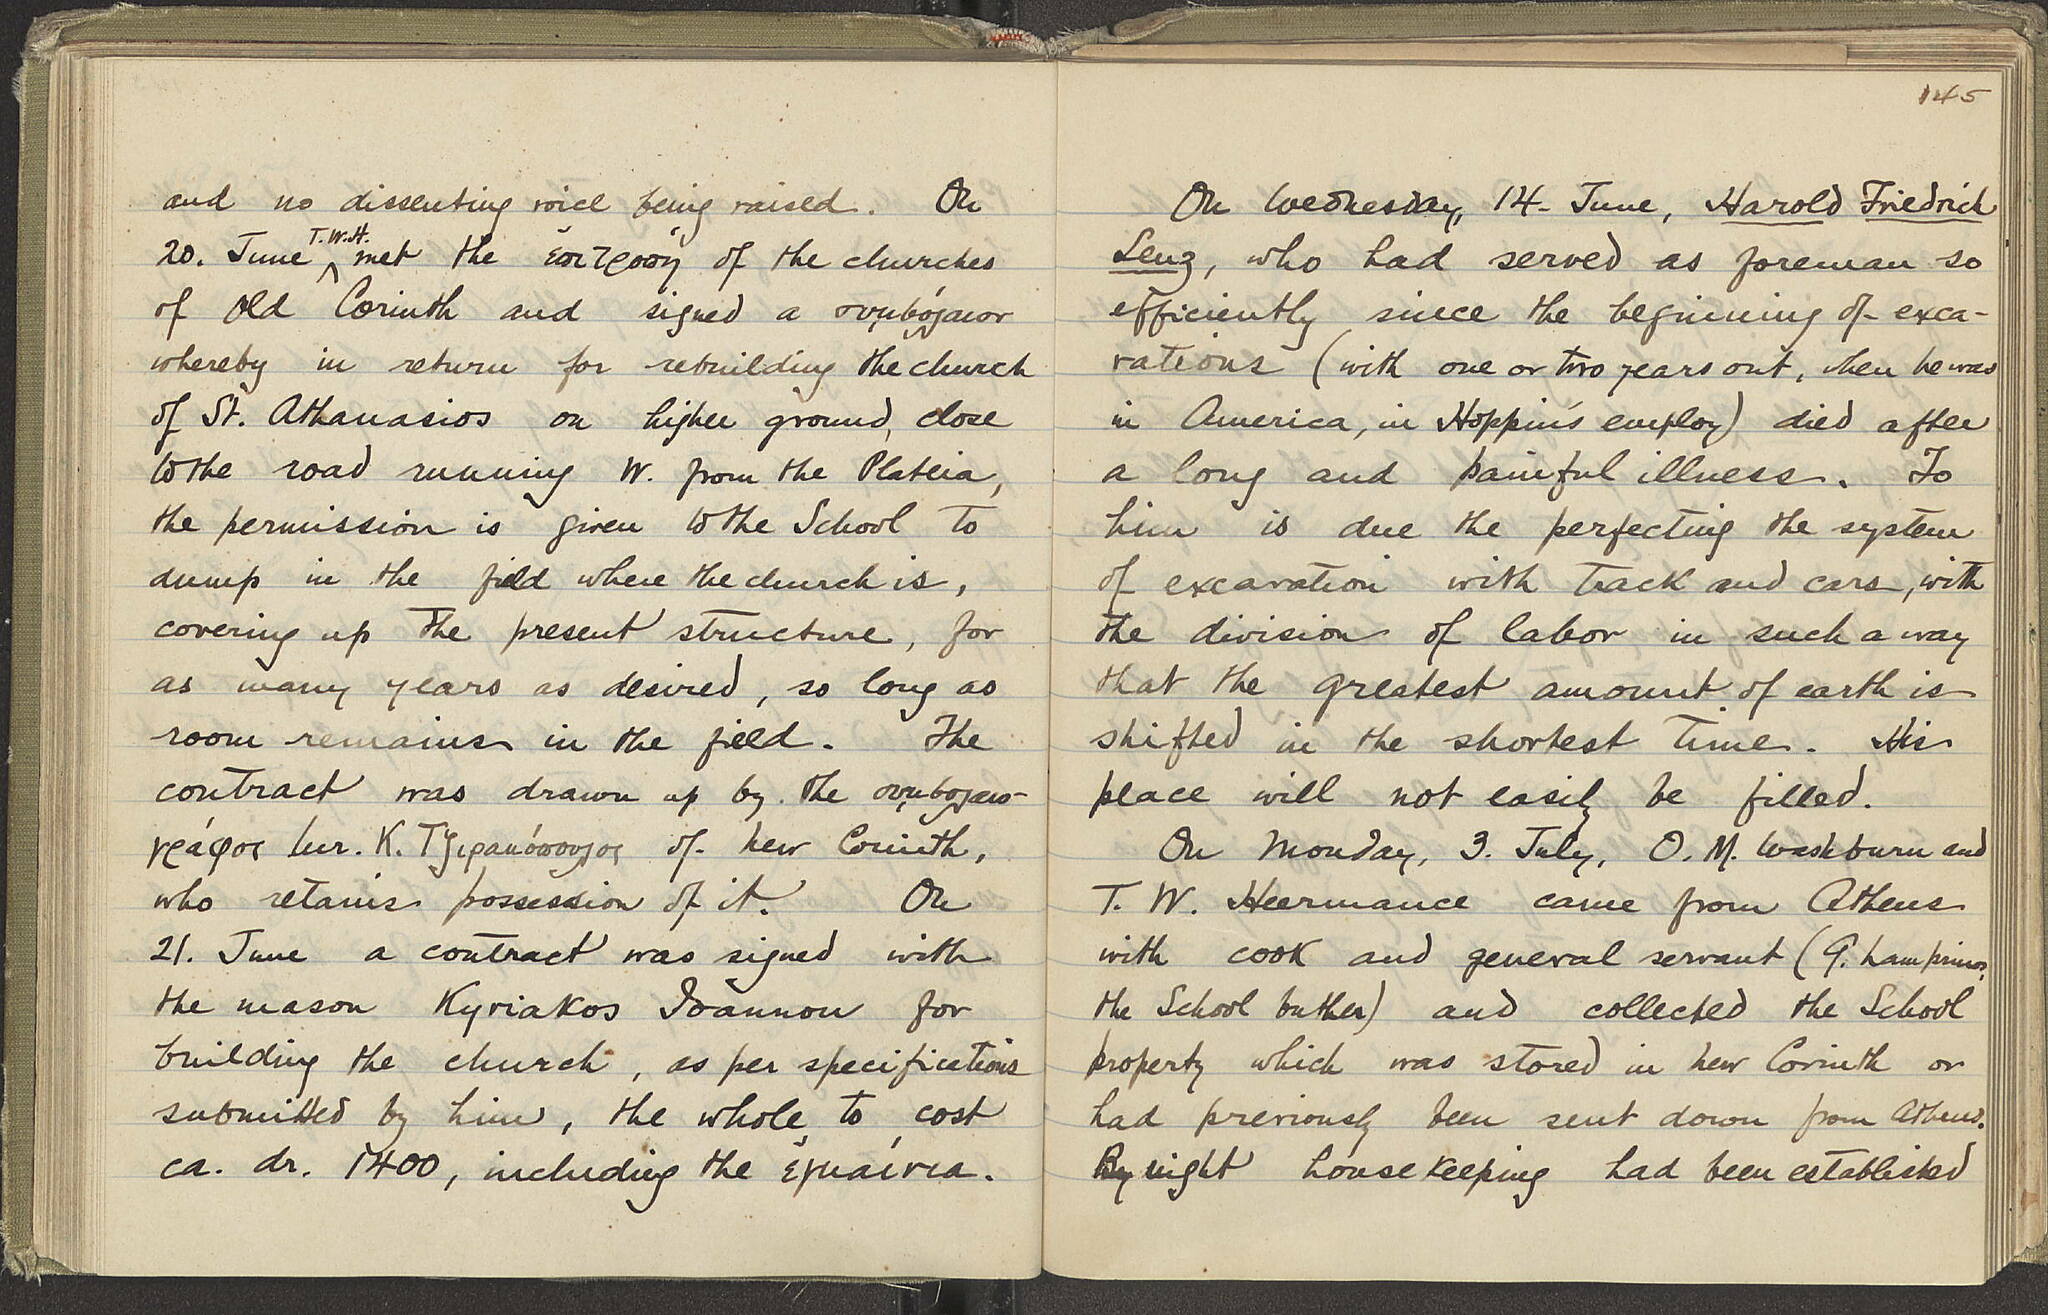 and no dissenting voice being raised. On
T.W.H.
20. June ^ met the ἐπιτροπή of the churches
of Old Corinth and signed a συμβόλαιον
whereby in return for rebuilding the church
of St. Athanasios on higher ground, close
to the road running W. from the Plateia,
the permission is given to the School to
dump in the field where the church is,
covering up the present structure, for
as many years as desired, so long as
room remains in the field. The
contract was drawn up by the συμβολαιο-
γράφος Mr. Κ. Τζιραμόπουλος of New Corinth,
who retains possession of it. On
21. June a contract was signed with
the mason Kyriakos Ioannou for
building the church, as per specifications
submitted by him, the whole to cost
ca. dr. 1400, including the ἐγκαίνια.
145
On Wednesday, 14 June, Harold Friedrich
Lenz, who had served as foreman so
efficiently since the beginning of exca-
vations (with one or two years out, when he was
in America, in Hoppin's employ) died after
a long and painful illness. To
him is due the perfecting the system
of excavation with track and cars, with
the division of labor in such a way
that the greatest amount of earth is
shifted in the shortest time. His
place will not easily be filled.
On Monday, 3. July, O. M. Washburn and
T. W. Heermance came from Athens
with cook and general servant (G. Lamprinos,
the School butler) and collected the School
property which was stored in New Corinth or
had previously been sent down from Athens.
By night housekeeping had been established